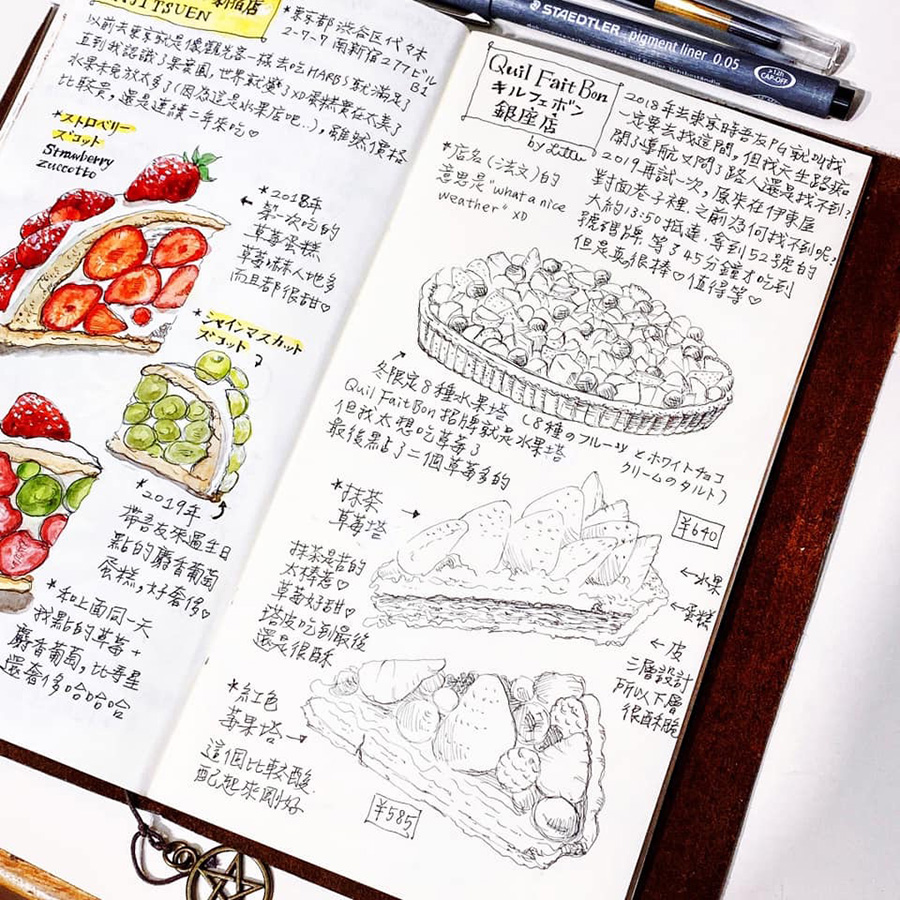 新宿店
*東京都渋谷区代々木
2-7-7 南新宿277ビル
B1
以前去東京就是像觀光客一樣去吃HARBS就滿足了
直到我認識了果實園,世界就變了XD蛋糕實在太美了
水果未免放太多了(因為這是水果店吧..),雖然價格
比較貴,還是連續二年來吃♡
*ストロベリー
ズコット
Strawberry
Zuccotto
*2018年
第一次吃的
草莓蛋糕
草莓嚇人地多
而且都很甜♡
*シャインマスカット
ズコット
*2019年
帶吾友來過生日
點的麝香葡萄
蛋糕,好奢侈♡
*和上面同一天
我點的草莓+
麝香葡萄,比壽星
還奢侈哈哈哈
STAEDTLER pigment liner 0.05
CAP-OFF
Quil Fait Bon
キルフェボン
銀座店
by Litu
2018年去東京時吾友PG就叫我
一定要去找這間,但我天生路痴
開了導航又問了路人還是找不到?
2019再試一次,原來在伊東屋
對面巷子裡,之前為何找不到呢!
大約13:50抵達,拿到52號的
號碼牌,等了45分鐘才吃到
但是真很棒♡值得等♡
*店名(法文)的
意思是"what a nice
weather" XD
冬限定8種水果塔(8種のフルーツとホワイトチョコ
クリームのタルト)
Quil Fait Bon招牌就是水果塔
但我太想吃草莓了
最後點了二個草莓多的
*抹茶
草莓塔
¥640
抹茶是苦的
太棒惹♡
草莓好甜♡
塔皮吃到最後
還是很酥
←水果
←蛋糕
←皮
三層設計
所以下層
很酥脆
*紅色
莓果塔
這個比較酸
配起來剛好
¥585